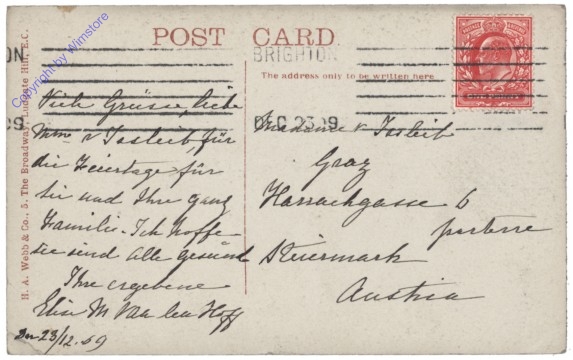 POST CARD
BRIGHTON
The address only to be written here
DEC 23 09
Copyright by Wimstore
H. A. Webb & Co., 5. The Broadway, Ludgate Hill, E.C.
Viele Grüsse, liebe
Mme v Issleib für
die Feiertage für
Sie und Ihre ganz
Familie. Ich hoffe
Sie sind alle gesund
Ihre ergebene
Elise M Van
23/12.09
Madame v Issleib
Graz
Harrachgasse 6
parterre
Steiermark
Austria